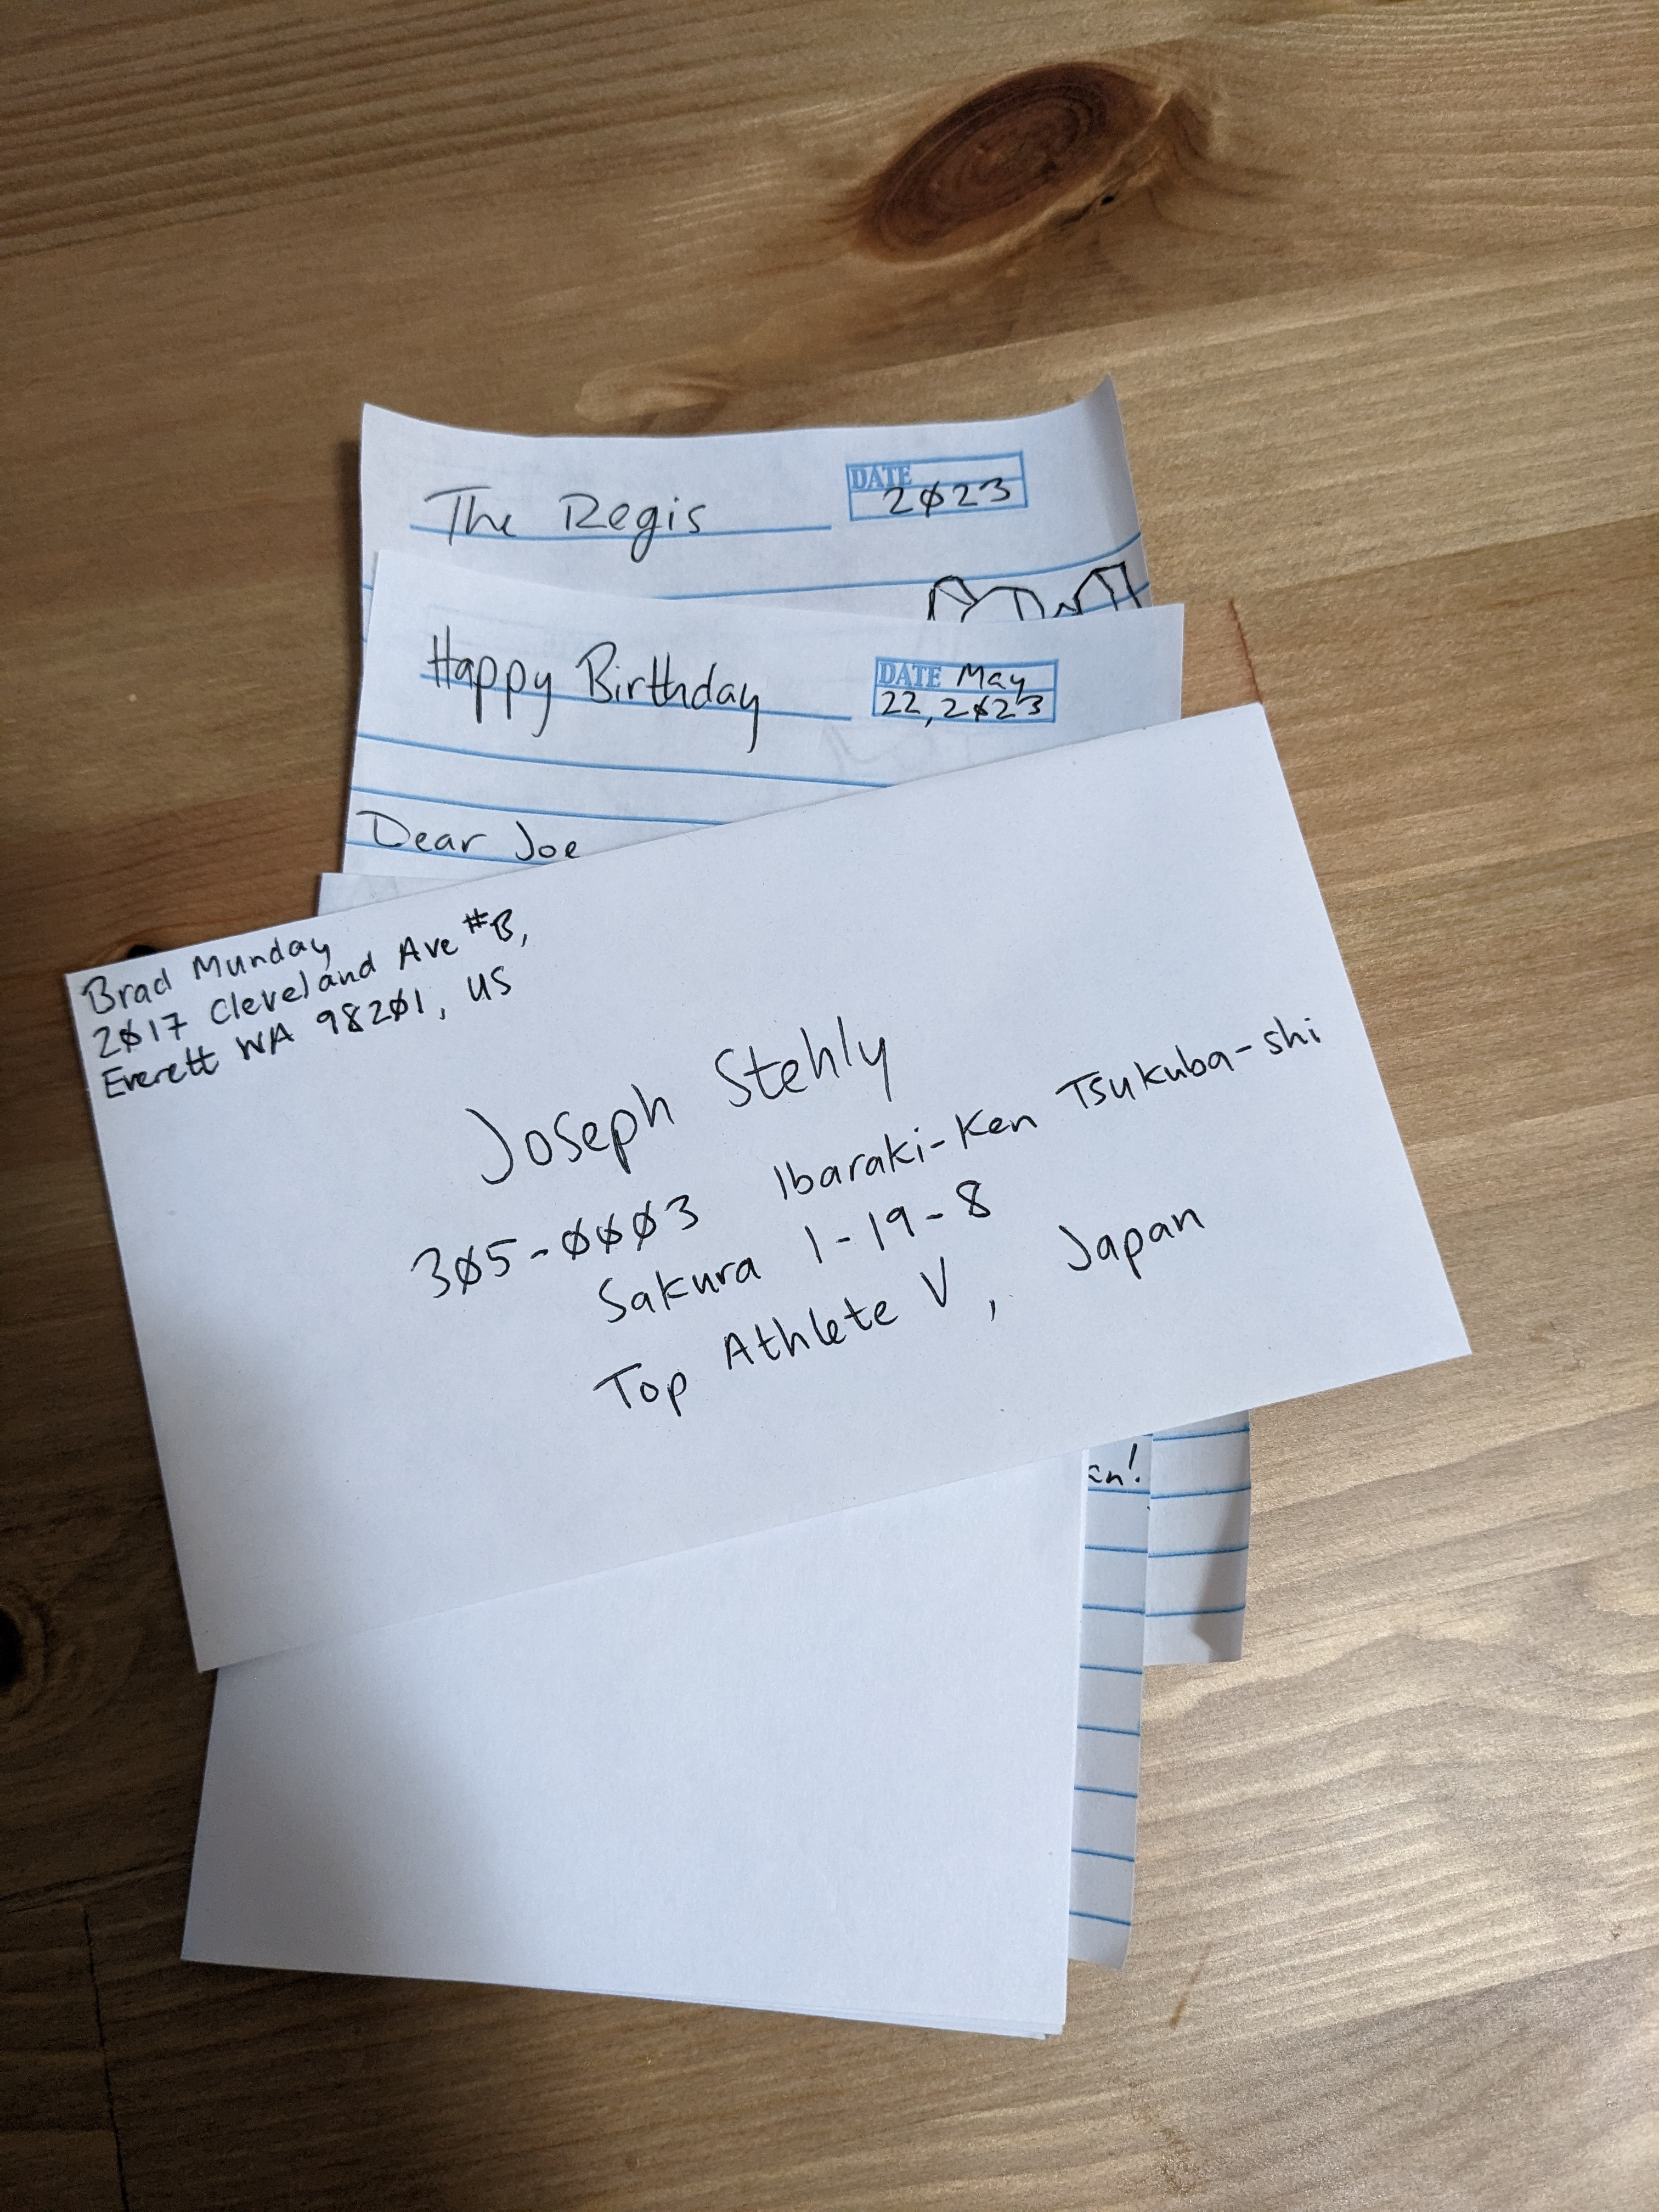 The Regis
DATE
2023
Happy Birthday
DATE May
22, 2023
Dear Joe
Brad Munday
2017 Cleveland Ave #B,
Everett WA 98201, US
Joseph Stehly
305-0003 Ibaraki-Ken Tsukuba-shi
Sakura 1-19-8
Top Athlete V, Japan